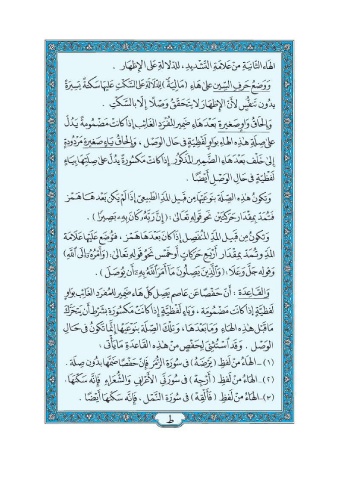 الهاء الثانية من علامة التشديد ، للدلالة على الإظهار .
ووضع حرف السين على هاء ( ماليه ) للدلالة على السكت عليها سكتة يسيرة
بدون تنفس لأن الإظهار لا يتحقق وصلًا إلا بالسكت .
وإلحاق واو صغيرة بعد هاء ضمير المفرد الغائب إذا كانت مضمومة يدل
على صلة هذه الهاء بواو لفظية في حال الوصل ، وإلحاق ياء صغيرة مردودة
إلى خلف بعد هاء الضمير المذكور إذا كانت مكسورة يدل على صلتها بياء
لفظية في حال الوصل أيضًا .
وتكون هذه الصلة بنوعيها من قبيل المد الطبيعي إذا لم يكن بعدها همز
فتمد بمقدار حركتين نحو قوله تعالى : ( إن ربه كان به بصيرا ) .
وتكون من قبيل المد المنفصل إذا كان بعدها همز ، فتوضع عليها علامة
المد وتمد بمقدار أربع حركات أو خمس نحو قوله تعالى : ( وأمره إلى الله )
وقوله جل وعلا : ( والذين يصلون ما أمر الله به أن يوصل ) .
والقاعدة : أن حفصًا عن عاصم يصل كل هاء ضمير للمفرد الغائب بواو
لفظية إذا كانت مضمومة ، وياء لفظية إذا كانت مكسورة بشرط أن يتحرك
ما قبل هذه الهاء وما بعدها ، وتلك الصلة بنوعيها إنما تكون في حال
الوصل . وقد استثني لحفص من هذه القاعدة ما يأتي :
(١) ــ الهاء من لفظ ( يرضه ) في سورة الزمر فإن حفصًا ضمها بدون صلة .
(٢) ــ الهاء من لفظ ( أرجه ) في سورتي الأعراف والشعراء فإنه سكنها .
(٣) ــ الهاء من لفظ ( فألقه ) في سورة النمل ، فإنه سكنها أيضًا .
ط